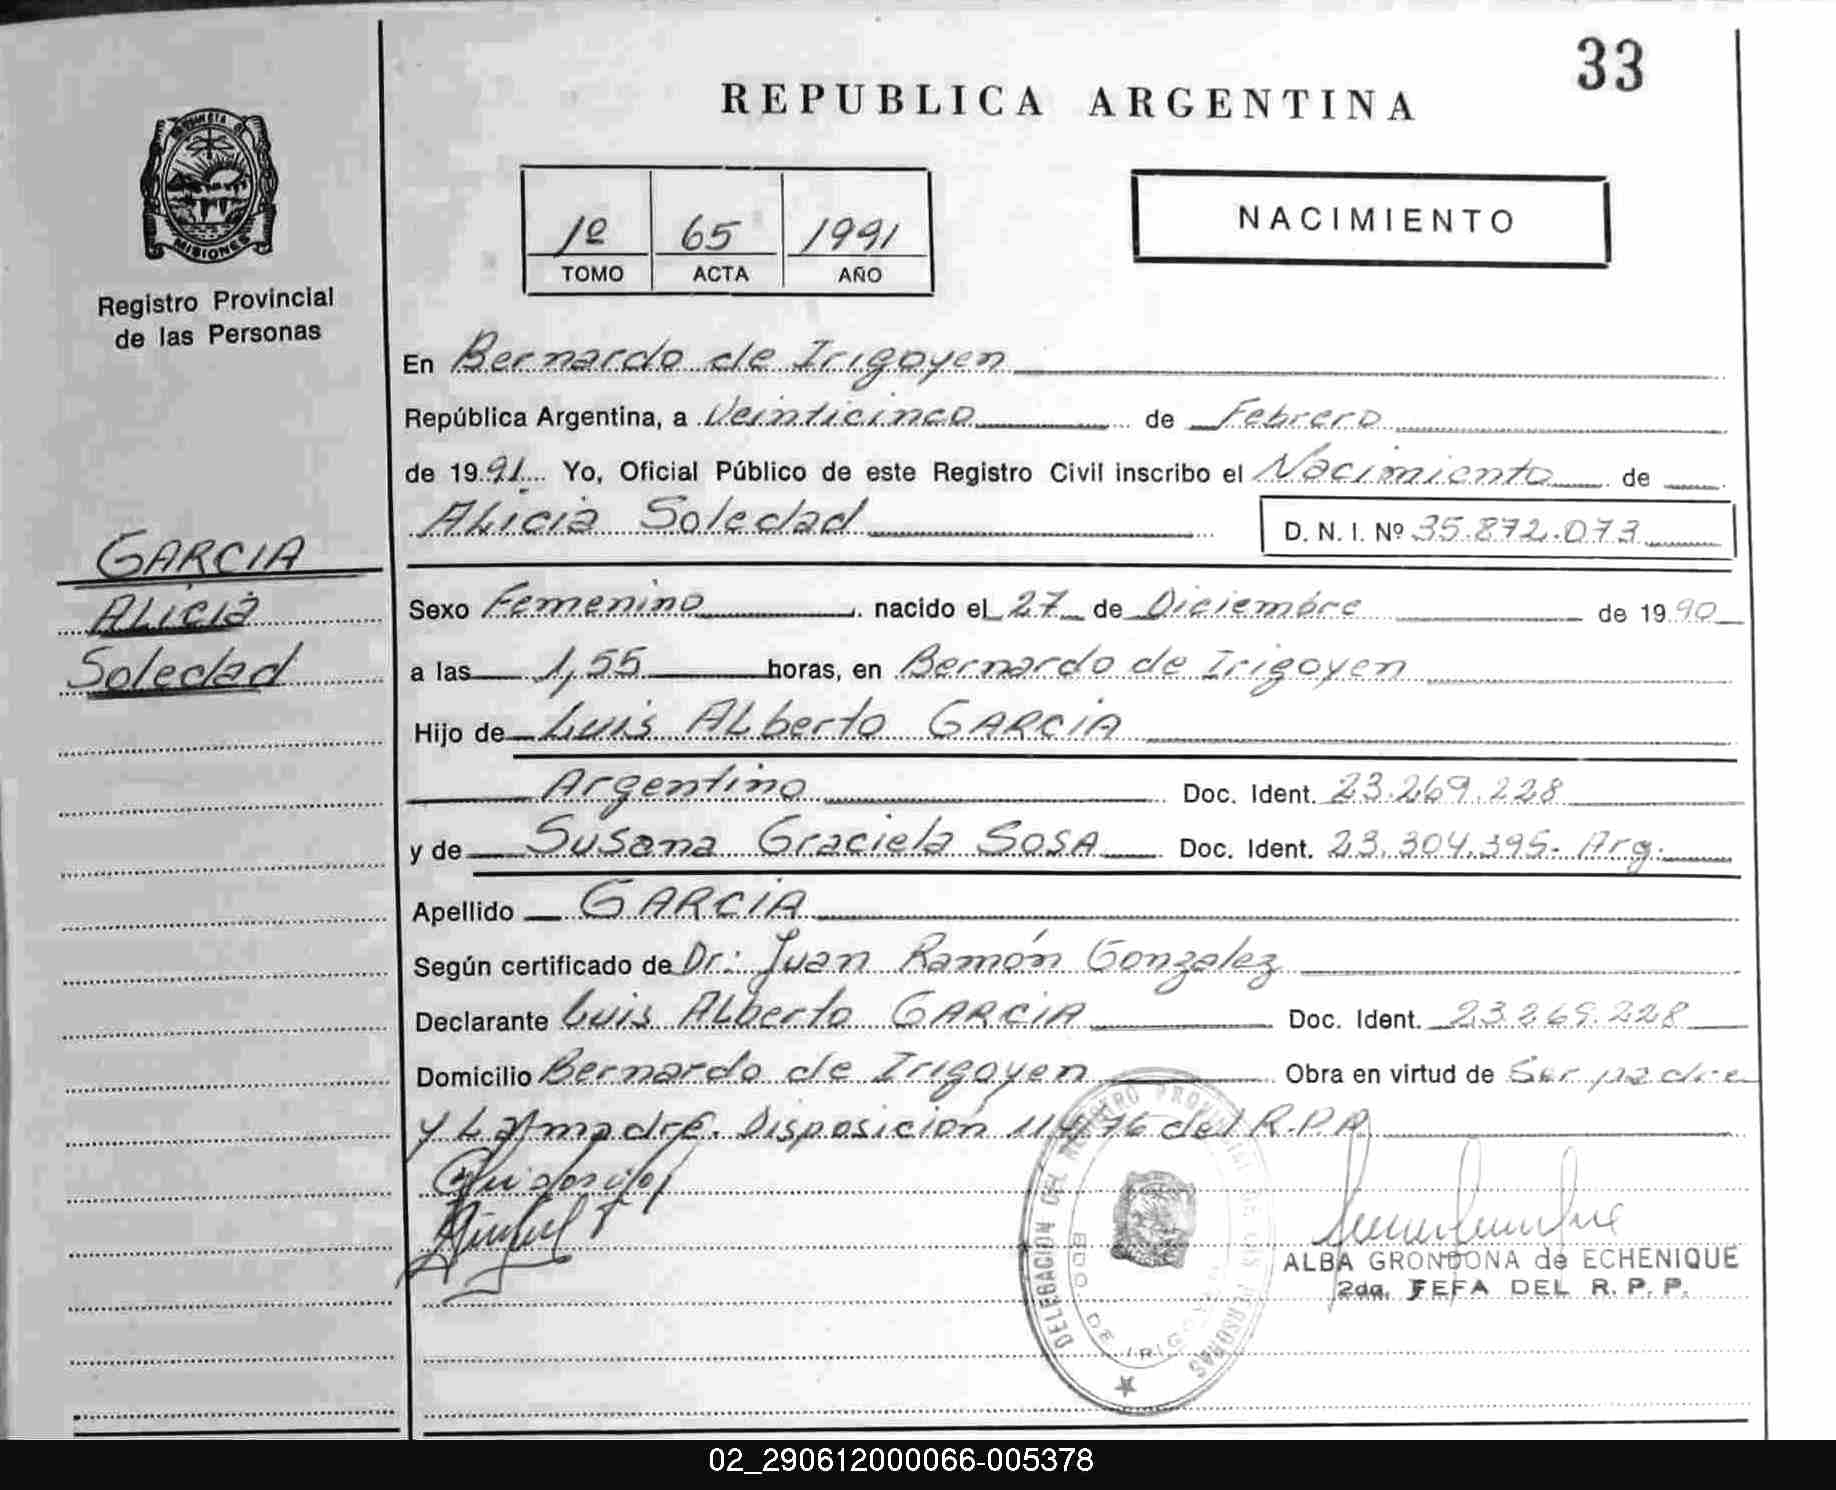 33
REPUBLICA ARGENTINA
MISIONES
Registro Provincial
de las Personas
1º 65 1991
TOMO ACTA AÑO
NACIMIENTO
En Bernardo de Irigoyen
República Argentina, a Veinticinco de Febrero
de 1991 Yo, Oficial Público de este Registro Civil inscribo el Nacimiento de
Alicia Soledad D. N. I. Nº 35.872.073
GARCIA
Alicia
Soledad
Sexo Femenino nacido el 27 de Diciembre de 1990
a las 1,55 horas, en Bernardo de Irigoyen
Hijo de Luis Alberto GARCIA
Argentino Doc. Ident. 23.269.228
y de Susana Graciela SOSA Doc. Ident. 23.304.395- Arg.
Apellido GARCIA
Según certificado de Dr: Juan Ramón Gonzalez
Declarante Luis Alberto GARCIA Doc. Ident. 23.269.228
Domicilio Bernardo de Irigoyen Obra en virtud de Ser padre
y La madre. Disposición 114/76 del R.P.P.
DELEGACION DEL REGISTRO PROVINCIAL DE LAS PERSONAS
BDO. DE IRIGOYEN
ALBA GRONDONA de ECHENIQUE
2da. JEFA DEL R. P. P.
02_290612000066-005378